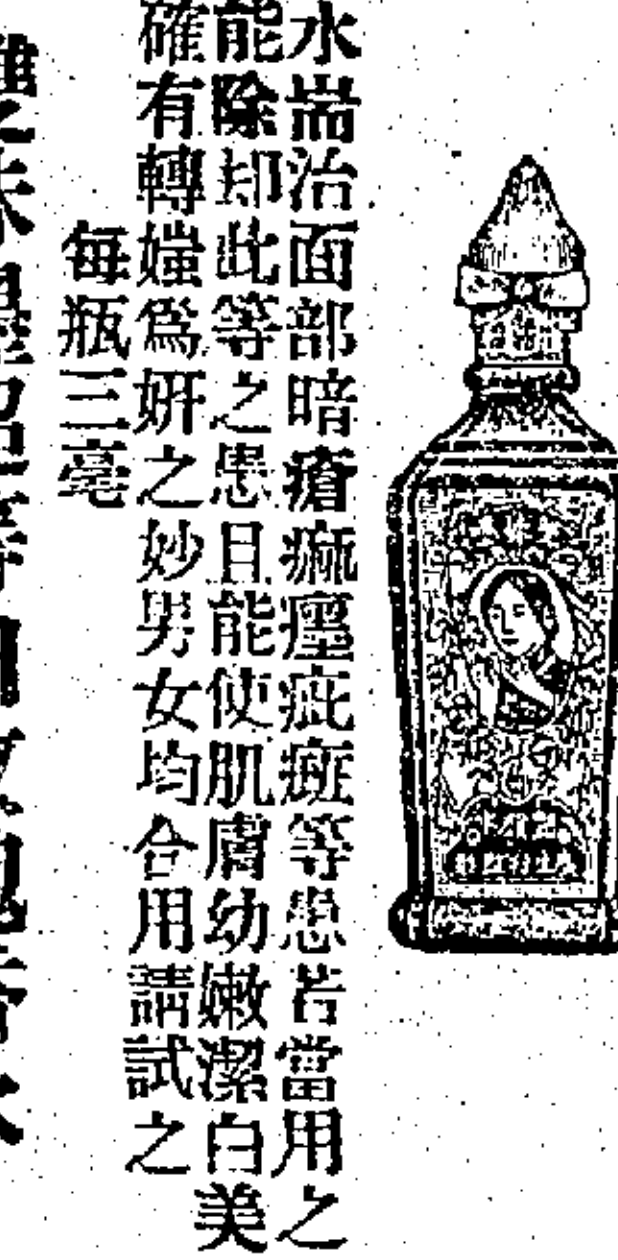 水耑治面部暗瘡痲癦疵癍等患若當用之
能除却此等之患且能使肌膚幼嫩潔白美
確有轉媸爲妍之妙男女均合用請試之
每瓶三毫